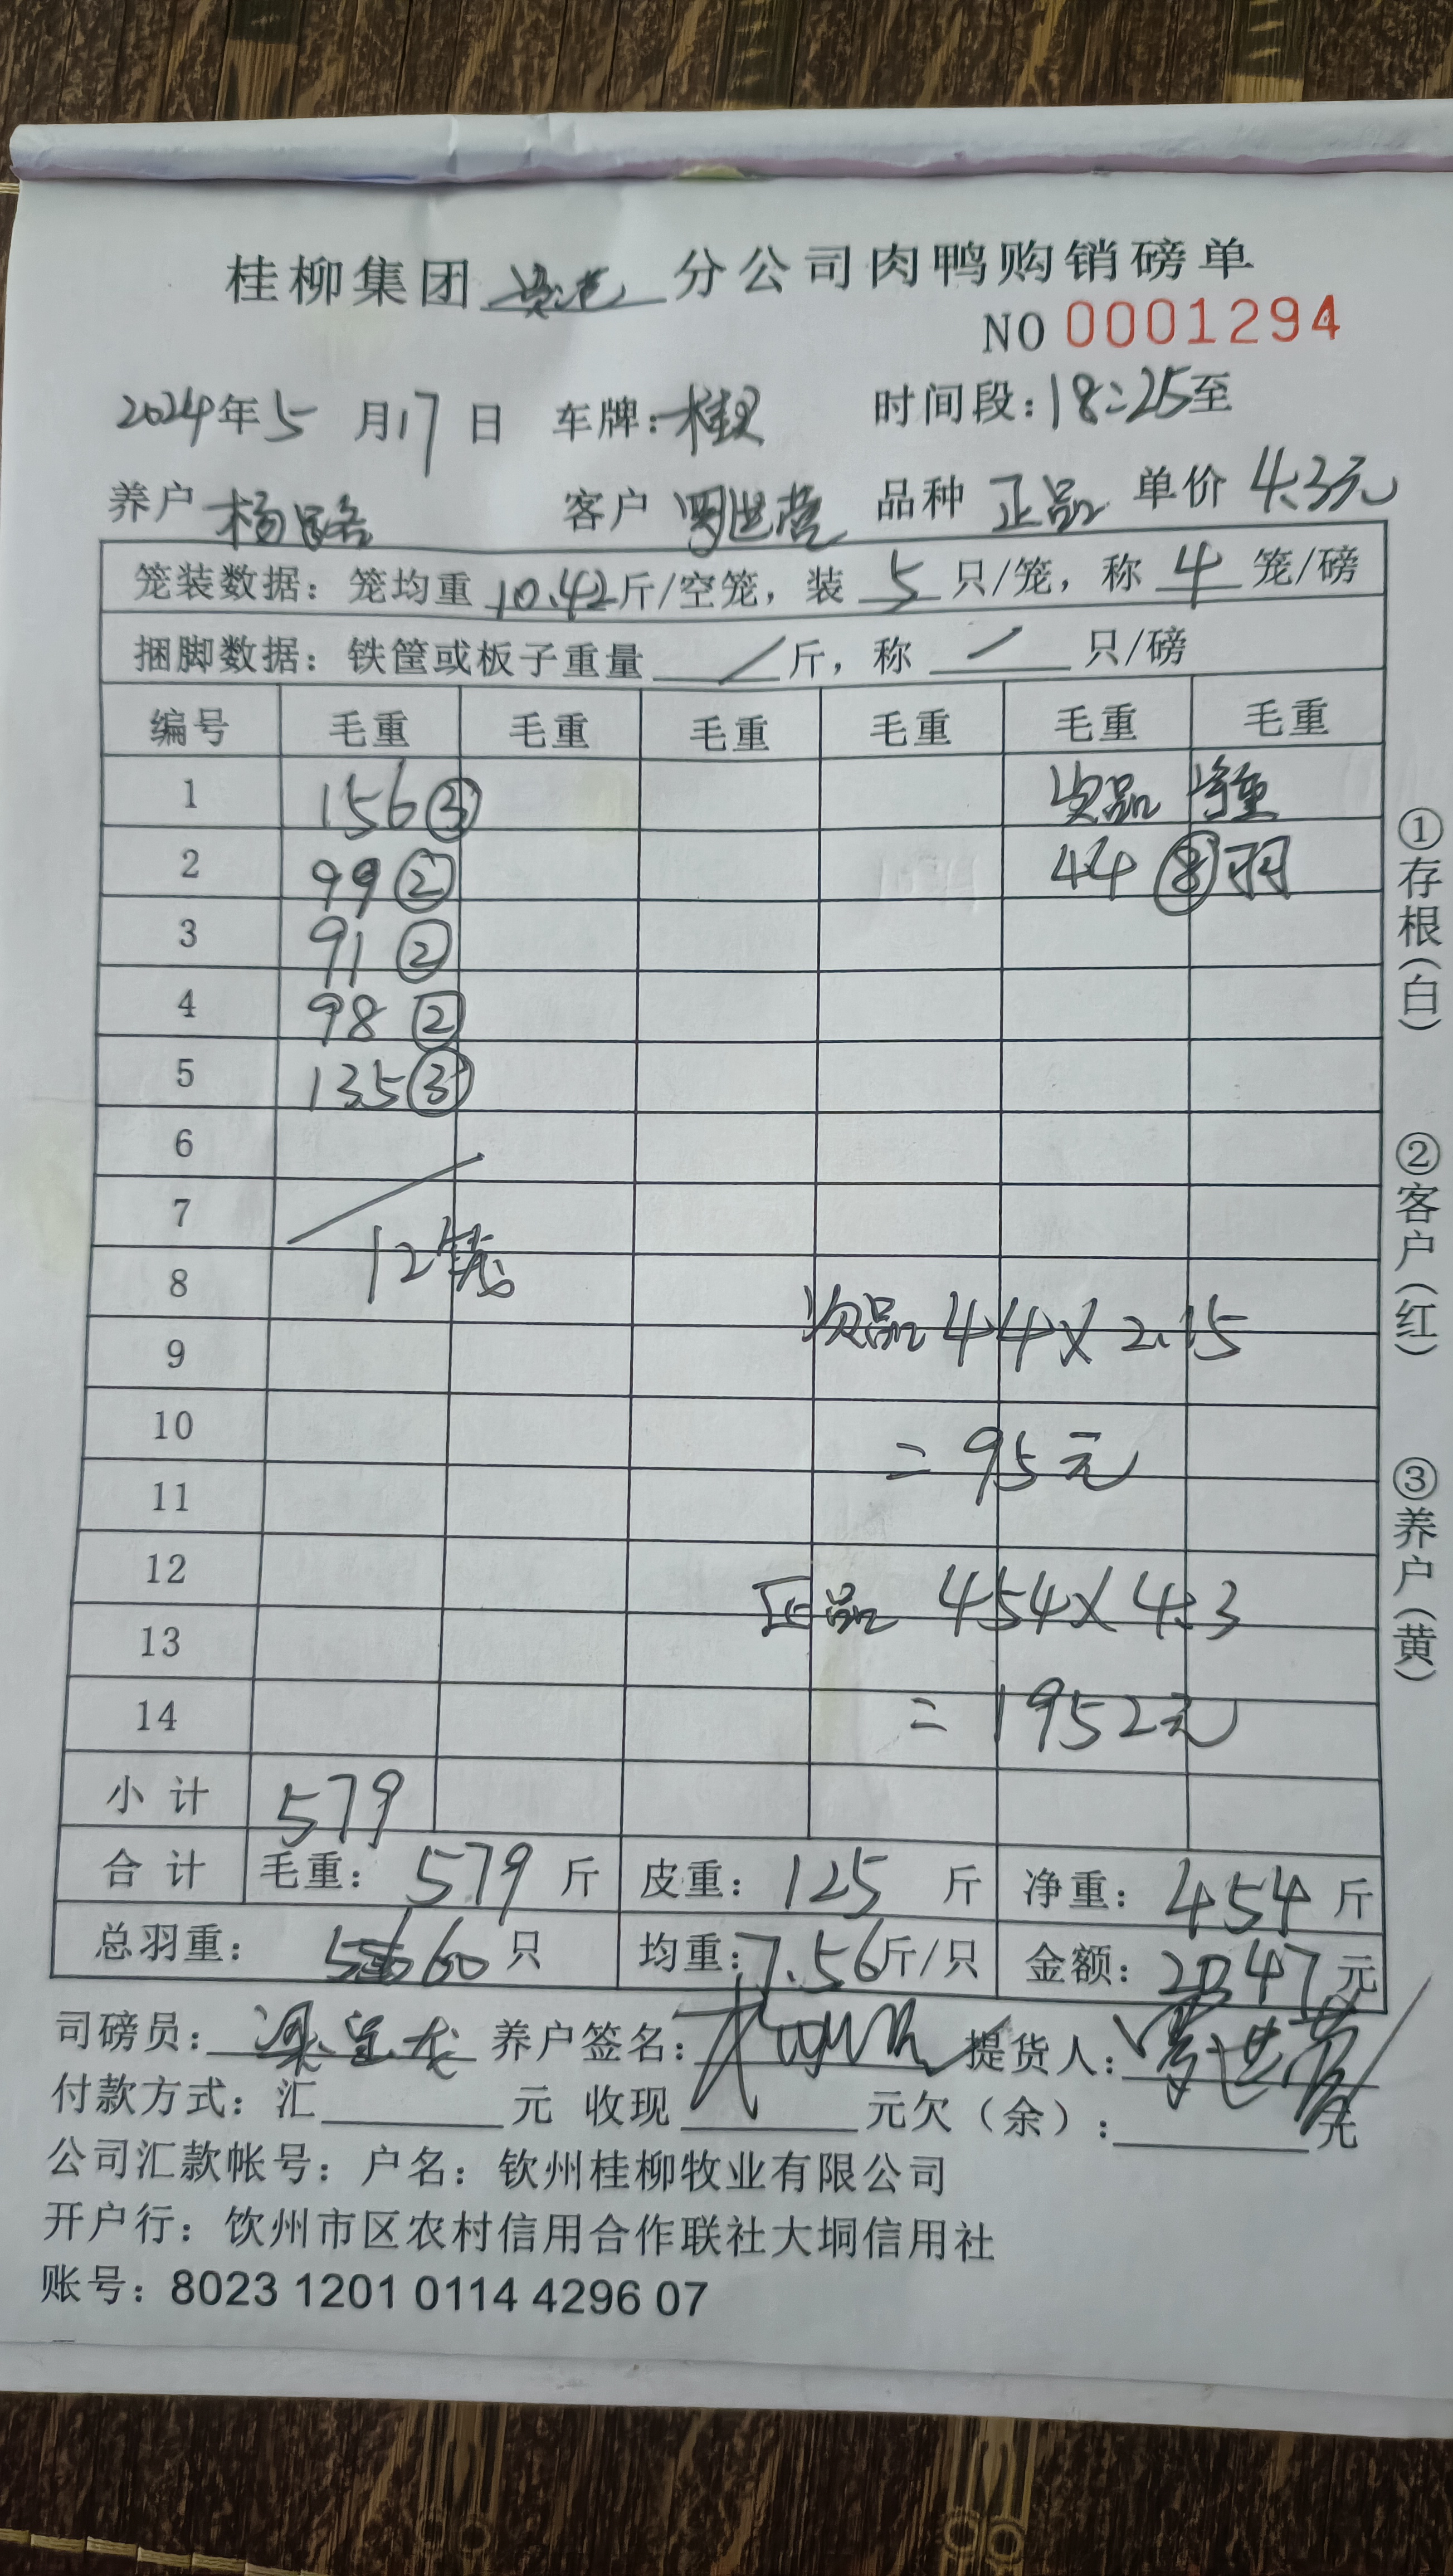 桂柳集团 分公司肉鸭购销磅单
NO 0001294
2024年5月17日 车牌:桂 时间段:18:25至
养户 杨 客户 罗世营 品种 正品 单价 4.3元
笼装数据：笼均重 10.42 斤/空笼，装 5 只/笼，称 4 笼/磅
捆脚数据：铁筐或板子重量 / 斤，称 / 只/磅
编号 毛重 毛重 毛重 毛重 毛重 毛重
1 156③ 次品 净重
2 99② 44 ⑧羽
3 91②
4 98②
5 135③
6
7
8 12笼
次品 44×2.15
9
10 =95元
11
12 正品 454×4.3
13
14 =1952元
小计 579
合计 毛重：579斤 皮重：125斤 净重：454斤
总羽重：60只 均重：7.56斤/只 金额：2047元
司磅员： 养户签名： 提货人：罗世营
付款方式：汇 元 收现 元欠（余）： 元
公司汇款帐号：户名：钦州桂柳牧业有限公司
开户行：饮州市区农村信用合作联社大垌信用社
账号：8023 1201 0114 4296 07
①存根（白）
②客户（红）
③养户（黄）